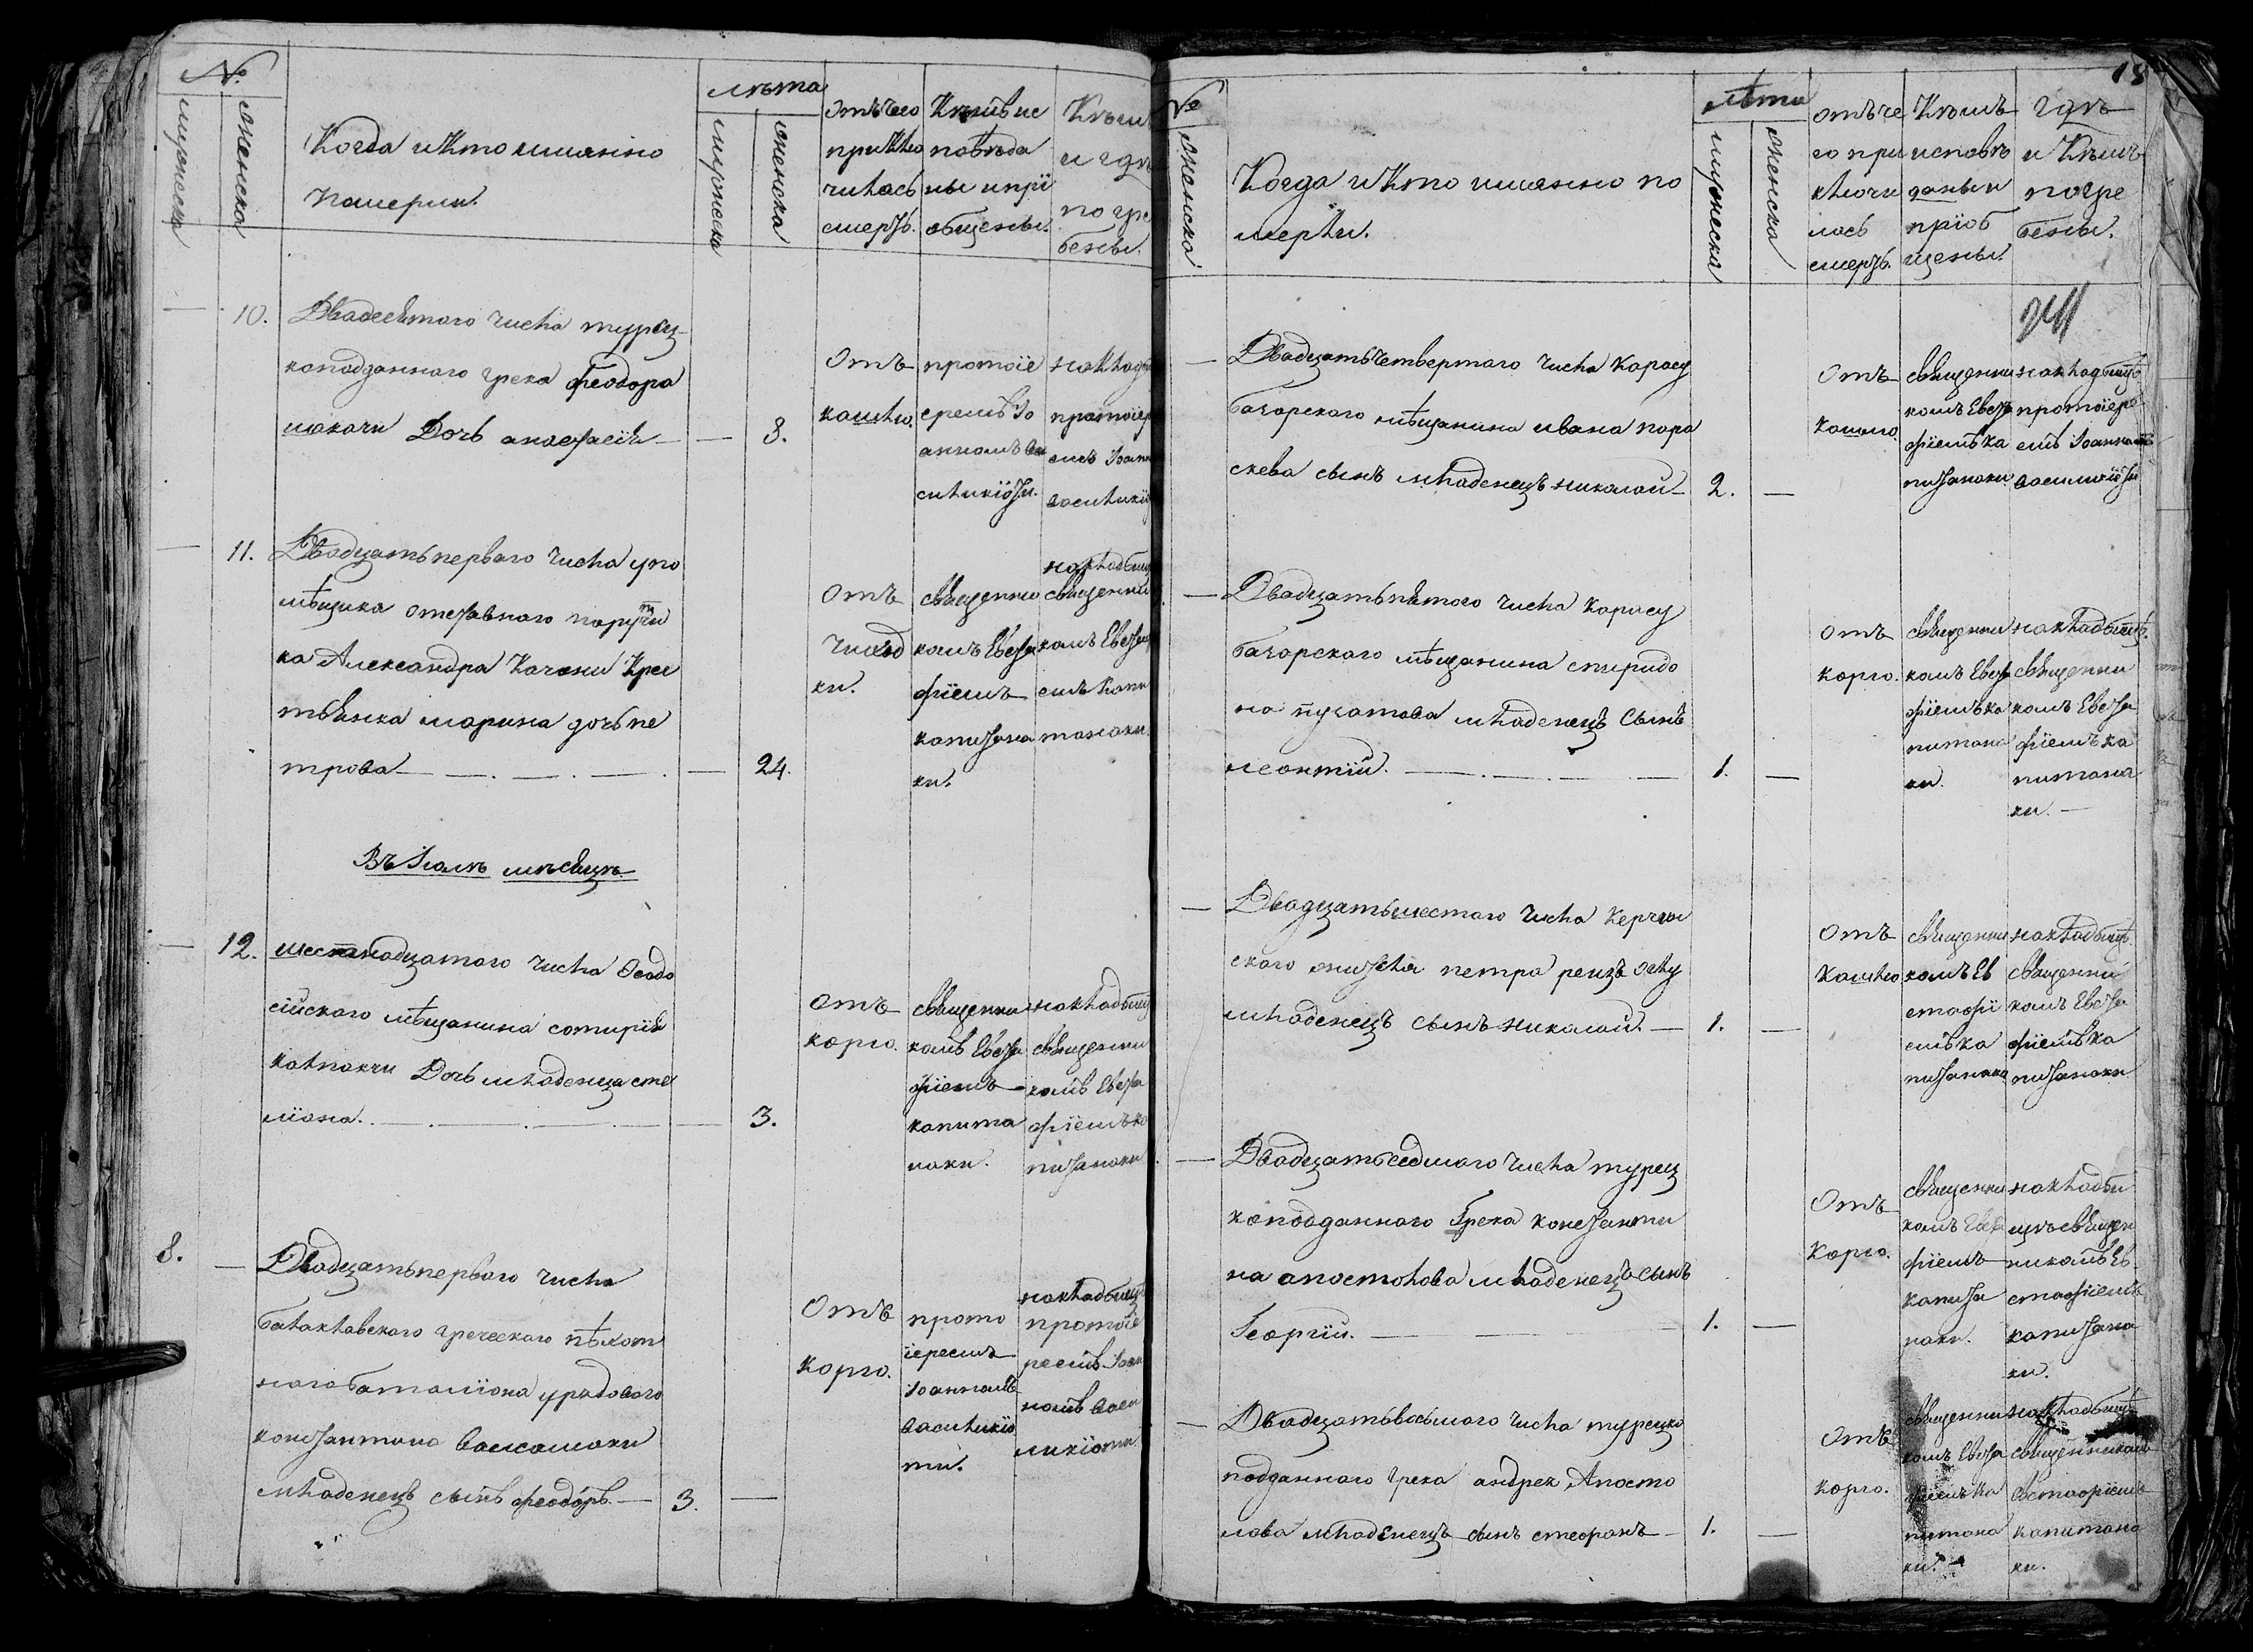 №
мужеска
женска
Когда и Кто имянно
Памерли.
лѣта
мужеска
женска
отъ чего
приклю
чилась
смерть.
Къмъ ис
повѣда
ны и прі
общены.
Къмъ
и гдѣ
погре
бены.
10.
Двадесятаго числа турец
коподданнаго грека Феодора
Дочь анастасія
8.
отъ
кашлю.
протоіе
реемъ Іо
анномъ Ва
силикіоти.
на клад
протоіер
емъ Іоанн
василикі
11.
Двадцать перваго числа упо
мѣщика отставнаго поручи
ка Александра Качони Крес
тьянка марина дочь пе
трова
24.
отъ
чиход
ки.
священни
комъ Евста
фіемъ
капитана
ки.
на кладбищ
священни
комъ Евста
емъ Капи
танаки.
Въ Іюлѣ мѣсяцѣ
12.
шестнадцатаго числа Феодо
сійскаго мѣщанина сотирія
калпакчи Дочь младенца сте
ліана.
3.
отъ
корю.
священни
комъ Евста
фіемъ
капита
наки.
на кладбищ
священни
комъ Евста
фіемъ ка
питанаки
8.
Двадцать перваго числа
балаклавскаго греческаго пѣхот
наго баталіона урядоваго
константина Валсамаки
младенецъ сынъ феодоръ.
3.
отъ
корю.
прото
іереемъ
Іоанномъ
василикіо
ти.
на кладбищѣ
протоіе
реемъ Іоан
номъ Васи
ликіоти
18
№
женска
Когда и Кто имянно по
мерли.
лѣта
мужеска
женска
отъ че
го при
ключи
лась
смерть.
Къмъ
исповѣ
даны и
пріоб
щены.
гдѣ
и Къмъ
погре
бены.
Двадцать четвертаго числа Карасу
базарскаго мѣщанина ивана пара
скева сынъ младенецъ николай
2.
отъ
кашлю.
священни
комъ Евста
фіемъ ка
питанаки.
на кладбищѣ
протоіере
емъ Іоанномъ
василикіоти
Двадцать пятаго числа Карасу
базарскаго мѣщанина спиридо
на пугатова младенецъ Сынъ
леонтій.
1.
отъ
корю.
священни
комъ Евста
фіемъ ка
питана
ки.
на кладбищѣ.
священни
комъ Евста
фіемъ ка
питана
ки.
Двадцать шестаго числа Керчен
скаго петра
младенецъ сынъ николай.
1.
отъ
Кашлю
священни
комъ Ев
стафі
емъ ка
питанаки
на кладбищѣ.
священни
комъ Евста
фіемъ ка
питанаки
Двадцать седмаго числа турец
коподданнаго Грека константи
на апостолова младенецъ сынъ
Георгій.
1.
отъ
Корю.
священни
комъ Евста
фіемъ
капита
наки.
на кладби
щѣ священ
никомъ Ев
стафіемъ
капитана
ки.
Двадцать восьмаго числа турецко
подданнаго грека андрея Апосто
лова младенецъ сынъ стефанъ
1.
отъ
корю.
священни
комъ Евста
фіемъ ка
питана
ки.
на кладбищѣ
священникомъ
Евстафіемъ
капитана
ки.